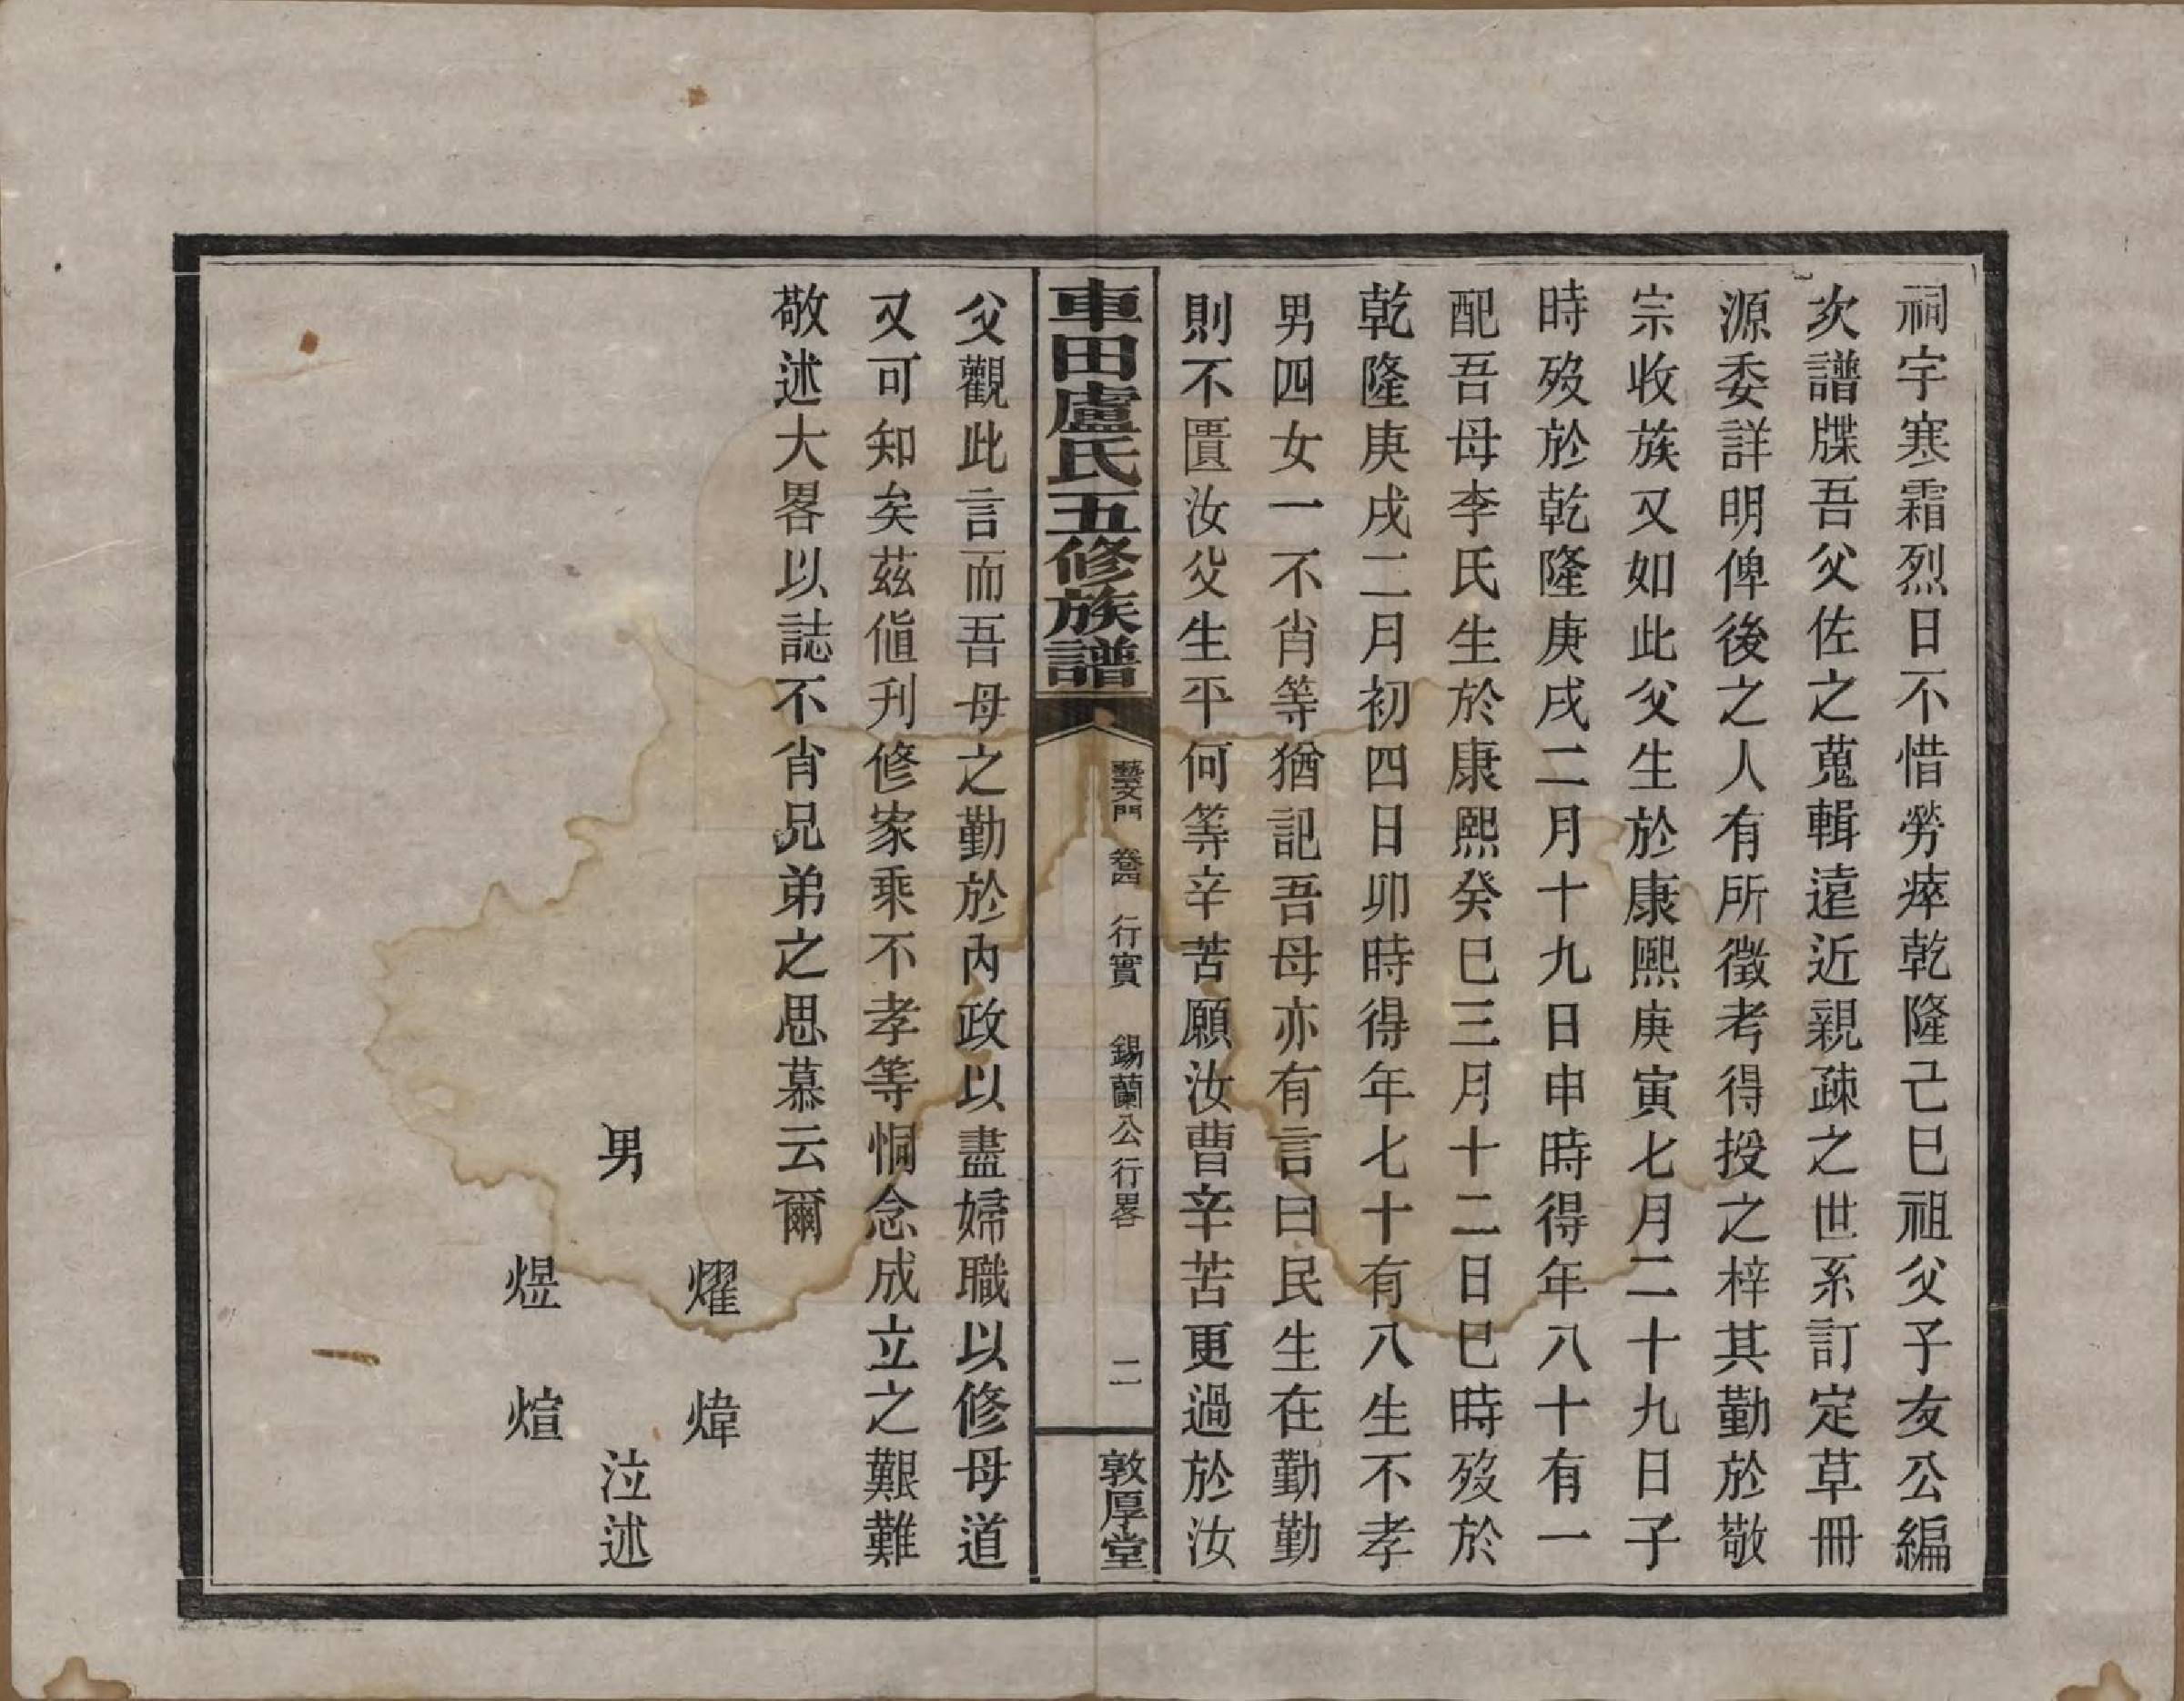 祠宇寒霜烈日不惜勞瘁乾隆己巳祖父子友公編
次譜牒吾父佐之蒐輯遠近親疎之世系訂定草冊
源委詳明俾後之人有所徵考得授之梓其勤於敬
宗收族又如此父生於康熙庚寅七月二十九日子
時歿於乾隆庚戌二月十九日申時得年八十有一
配吾母李氏生於康熙癸巳三月十二日巳時歿於
乾隆庚戌二月初四日卯時得年七十有八生不孝
男四女一不肖等猶記吾母亦有言曰民生在勤勤
則不匱汝父生平何等辛苦願汝曹辛苦更過於汝
車田盧氏五修族譜
藝文門 卷四 行實 錫蘭公行畧 二
敦厚堂
父觀此言而吾母之勤於內政以盡婦職以修母道
又可知矣茲值刋修家乘不孝等恫念成立之艱難
敬述大畧以誌不肖兄弟之思慕云爾
燿 煒
男 泣述
煜 煊